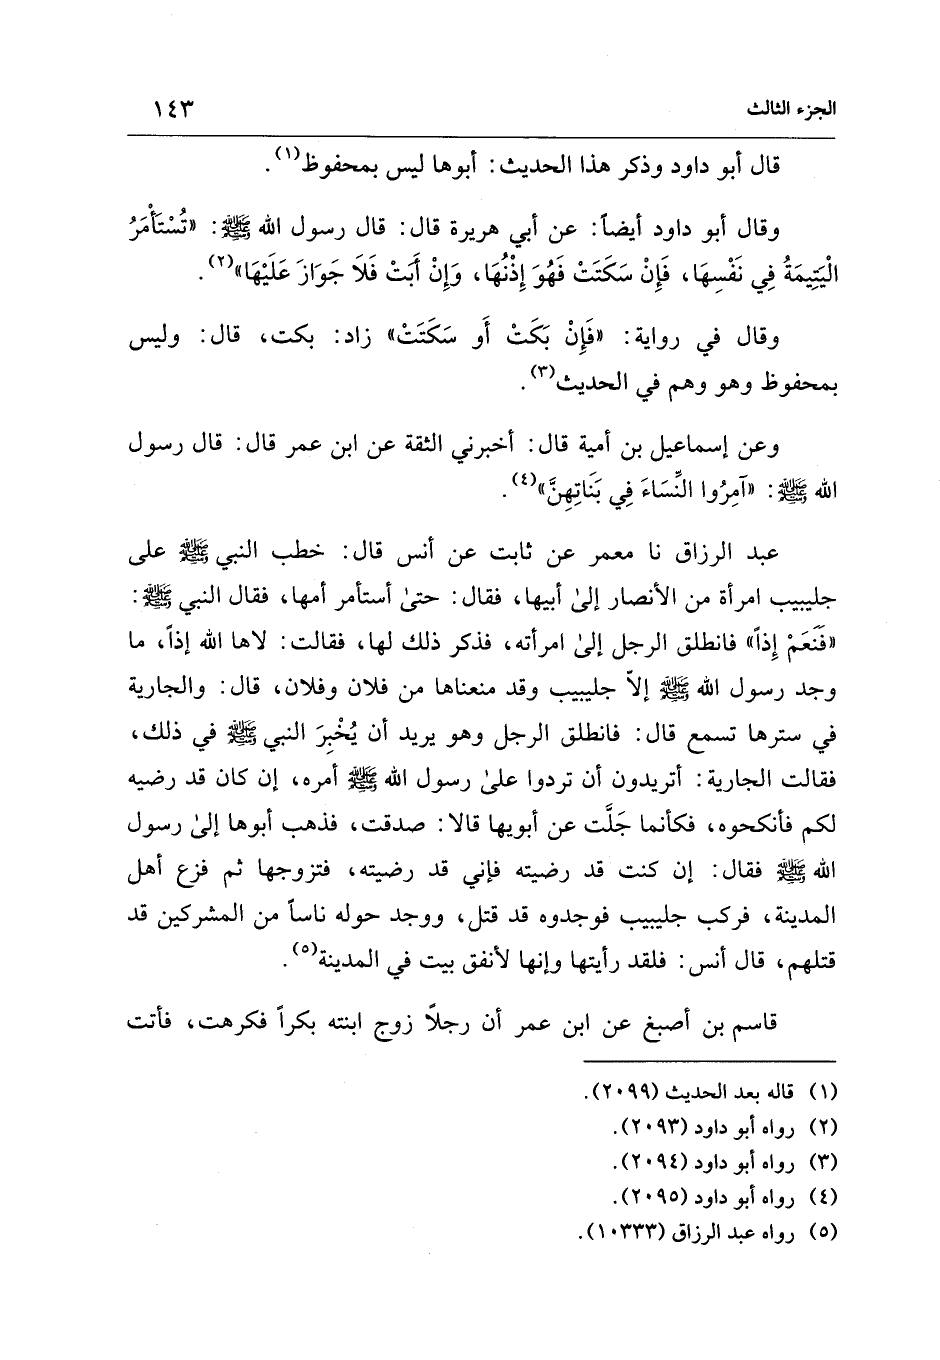 الجزء الثالث ١٤٣
قال أبو داود وذكر هذا الحديث: أبوها ليس بمحفوظ(١).
وقال أبو داود أيضاً: عن أبي هريرة قال: قال رسول الله ﷺ: «تُسْتَأْمَرُ
الْيَتِيمَةُ فِي نَفْسِهَا، فَإِنْ سَكَتَتْ فَهُوَ إِذْنُهَا، وَإِنْ أَبَتْ فَلَا جَوَازَ عَلَيْهَا»(٢).
وقال في رواية: «فَإِنْ بَكَتْ أَو سَكَتَتْ» زاد: بكت، قال: وليس
بمحفوظ وهو وهم في الحديث(٣).
وعن إسماعيل بن أمية قال: أخبرني الثقة عن ابن عمر قال: قال رسول
الله ﷺ: «آمِرُوا النِّسَاءَ فِي بَنَاتِهِنَّ»(٤).
عبد الرزاق نا معمر عن ثابت عن أنس قال: خطب النبي ﷺ على
جليبيب امرأة من الأنصار إلىٰ أبيها، فقال: حتىٰ أستأمر أمها، فقال النبي ﷺ:
«فَنَعَمْ إِذاً» فانطلق الرجل إلىٰ امرأته، فذكر ذلك لها، فقالت: لاها الله إذاً، ما
وجد رسول الله ﷺ إلاّ جليبيب وقد منعناها من فلان وفلان، قال: والجارية
في سترها تسمع قال: فانطلق الرجل وهو يريد أن يُخْبِرَ النبي ﷺ في ذلك،
فقالت الجارية: أتريدون أن تردوا علىٰ رسول الله ﷺ أمره، إن كان قد رضيه
لكم فأنكحوه، فكأنما جَلَّت عن أبويها قالا: صدقت، فذهب أبوها إلىٰ رسول
الله ﷺ فقال: إن كنت قد رضيته فإني قد رضيته، فتزوجها ثم فزع أهل
المدينة، فركب جليبيب فوجدوه قد قتل، ووجد حوله ناساً من المشركين قد
قتلهم، قال أنس: فلقد رأيتها وإنها لأنفق بيت في المدينة(٥).
قاسم بن أصبغ عن ابن عمر أن رجلاً زوج ابنته بكراً فكرهت، فأتت
(١) قاله بعد الحديث (٢٠٩٩).
(٢) رواه أبو داود (٢٠٩٣).
(٣) رواه أبو داود (٢٠٩٤).
(٤) رواه أبو داود (٢٠٩٥).
(٥) رواه عبد الرزاق (١٠٣٣٣).